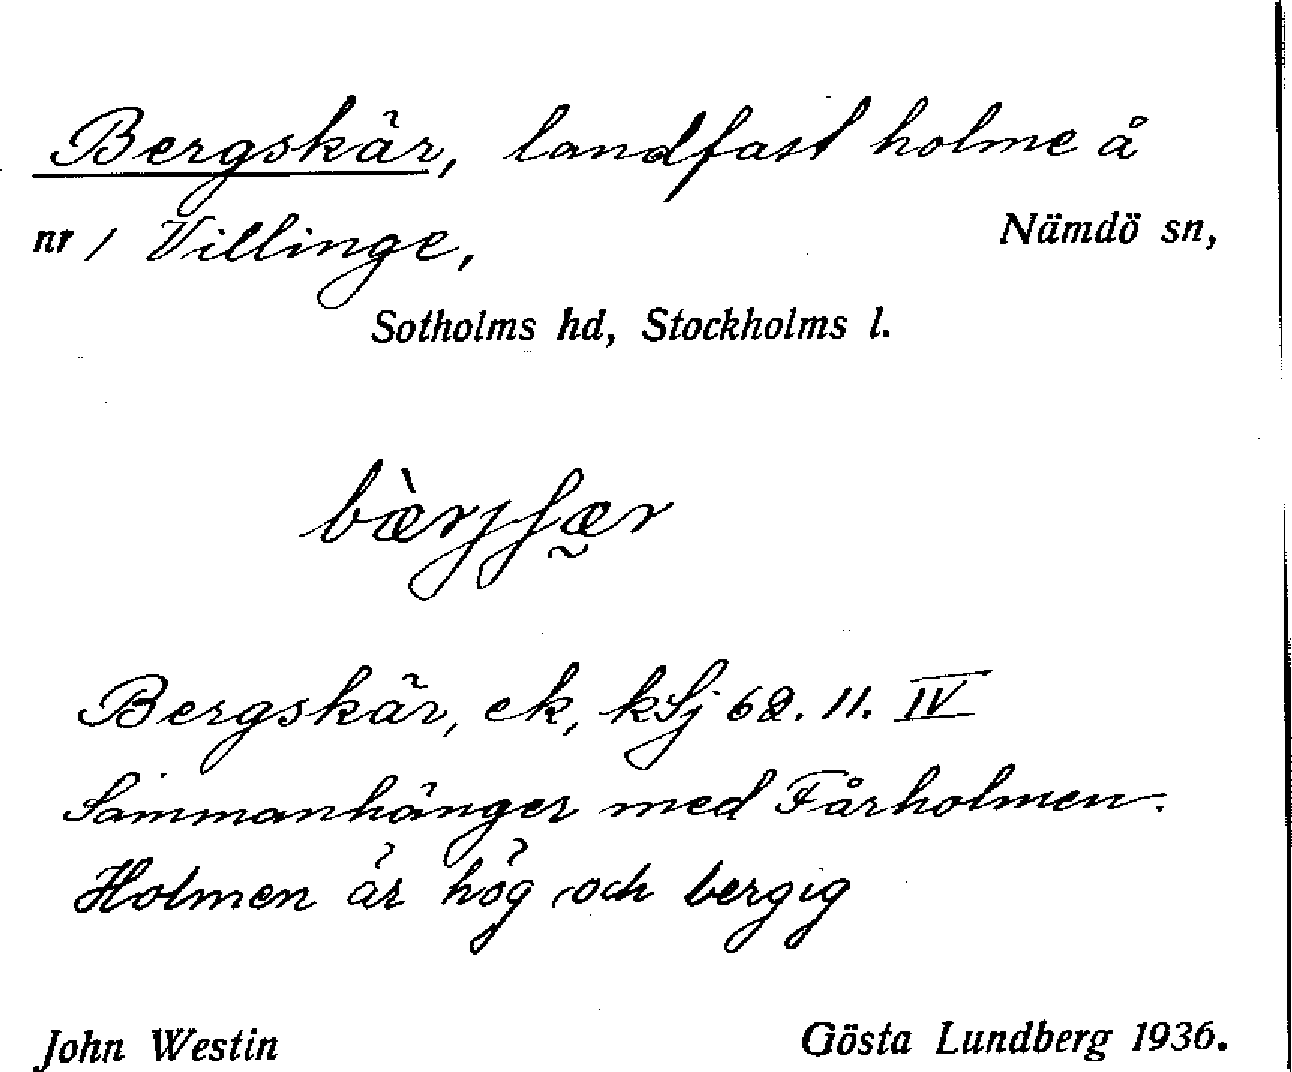 Bergskär, landfast holme å
nr 1 Villinge, Nämdö sn,
Sotholms hd, Stockholms l.
Bergskär, ek, kSj 62. 11. IV
Sammanhänger med Fårholmen.
Holmen är hög och bergig
John Westin Gösta Lundberg 1936.